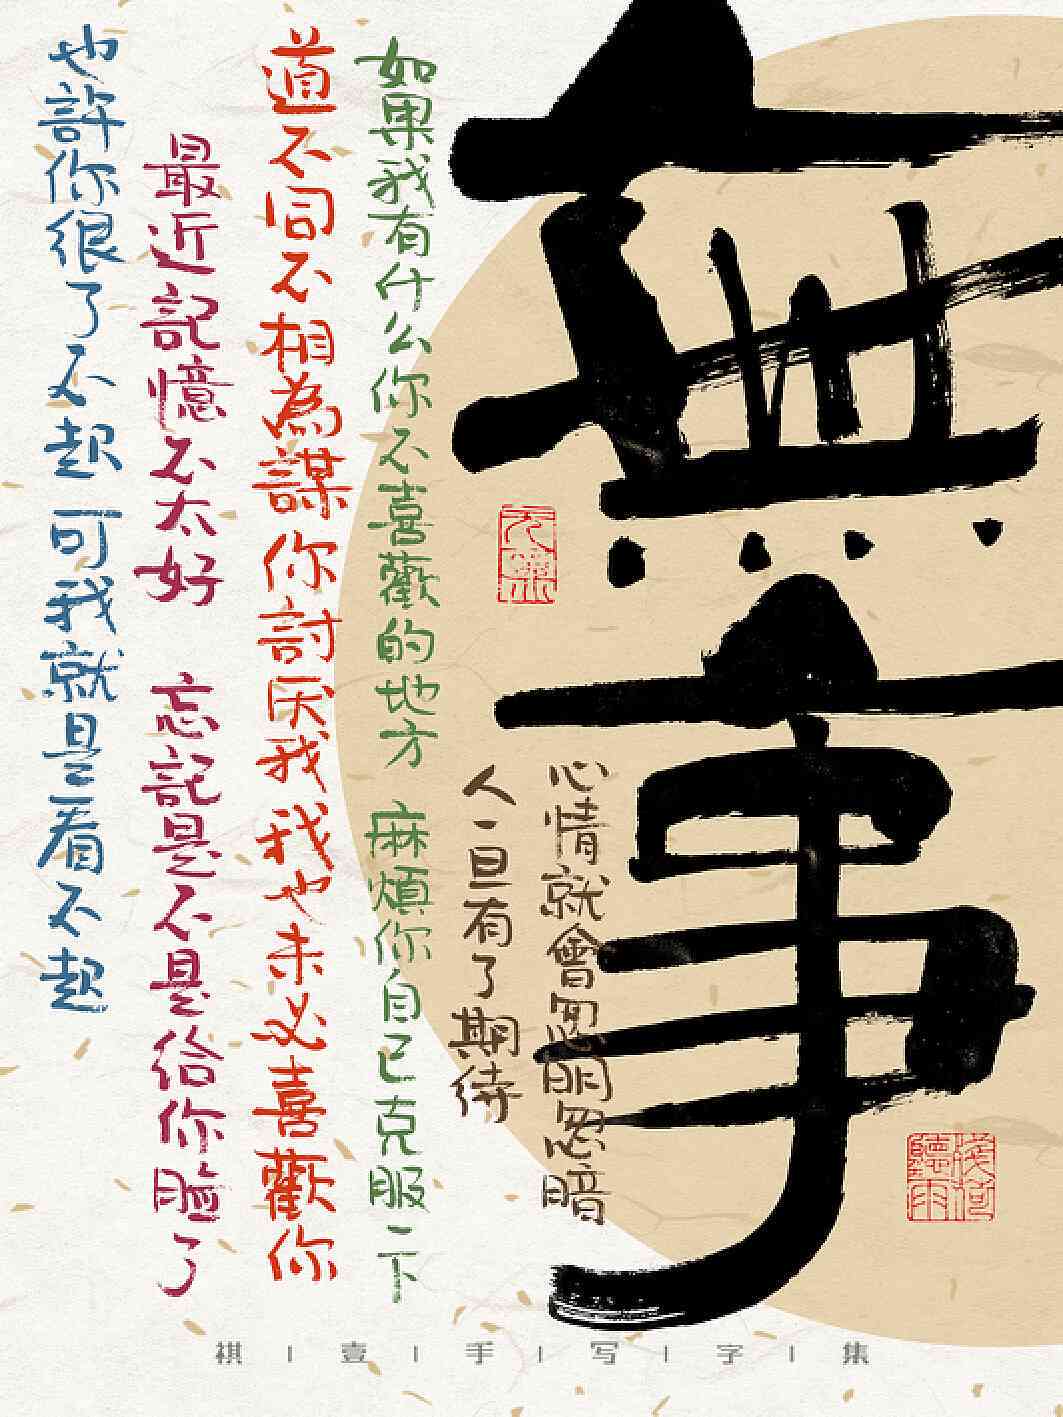 無事
人一旦有了期待
心情就會忽明忽暗
如果我有什么你不喜歡的地方 麻煩你自己克服一下
道不同不相為謀 你討厌我我也未必喜歡你
最近記憶不太好 忘記是不是給你臉了
也許你很了不起 可我就是看不起
聽雨
祺｜壹｜手｜写｜字｜集